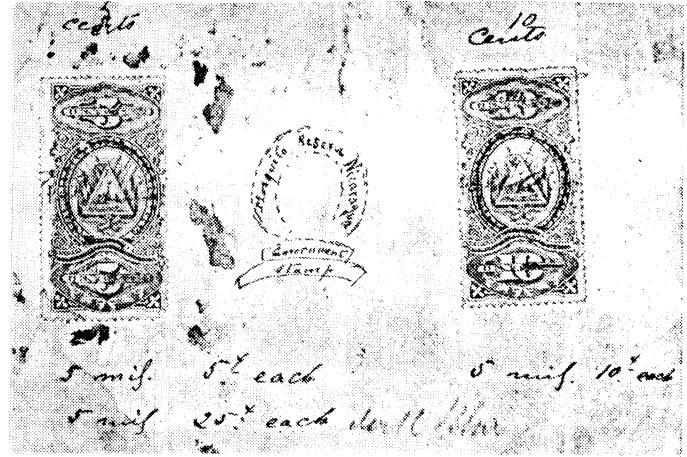 5
cents
10
Cents
5
10
Mosquito Reserve Nicaragua
Government
Stamp
5
10
5 mil. 5¢ each
5 mil. 10¢ each
5 mil 25¢ each